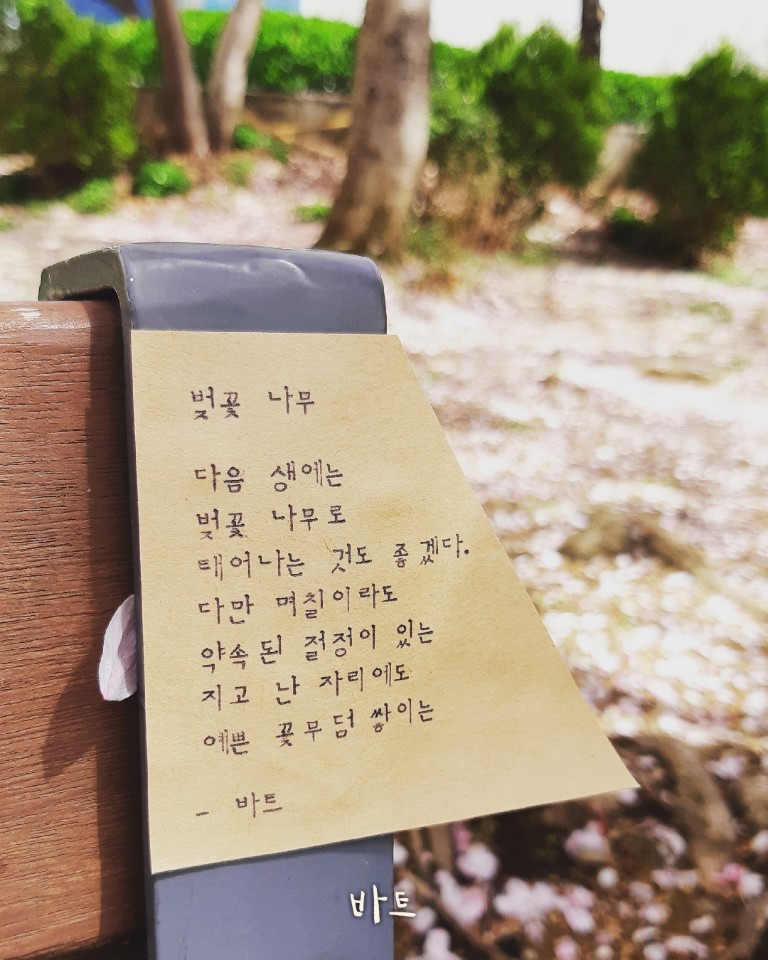 벚꽃 나무
다음 생에는
벚꽃 나무로
태어나는 것도 좋겠다.
다만 며칠이라도
약속된 절정이 있는
지고 난 자리에도
예쁜 꽃무덤 쌓이는
- 바트
바트